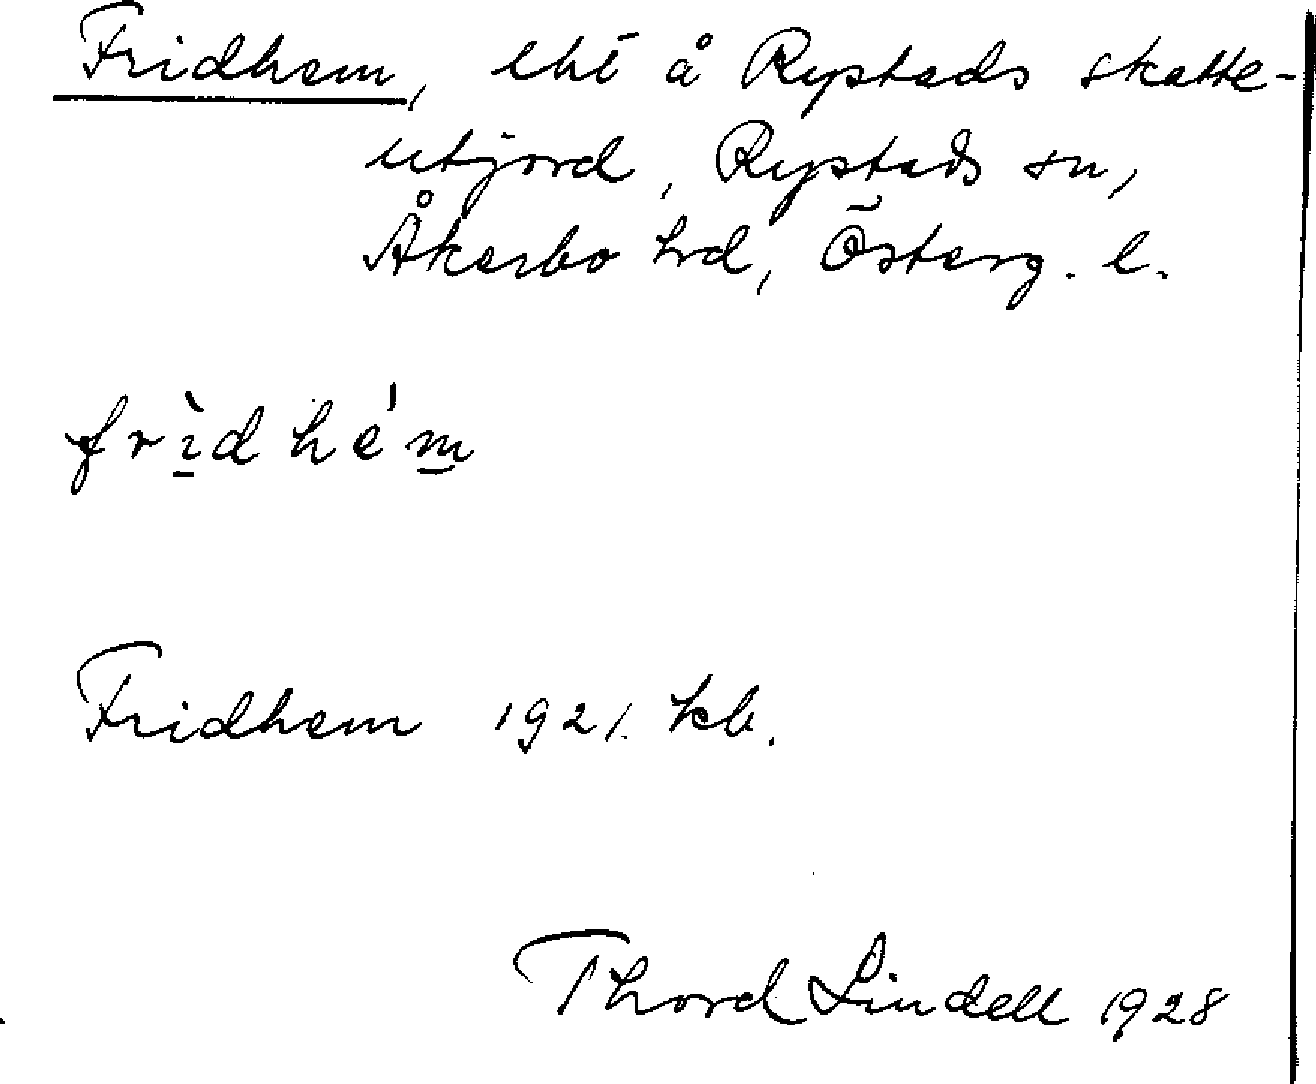 Fridhem, lht å Rystads skatte-
utjord, Rystads sn,
Åkerbo hrd, Österg. l.
frìdhém
Fridhem 1921. kb.
Thord Lindell 1928